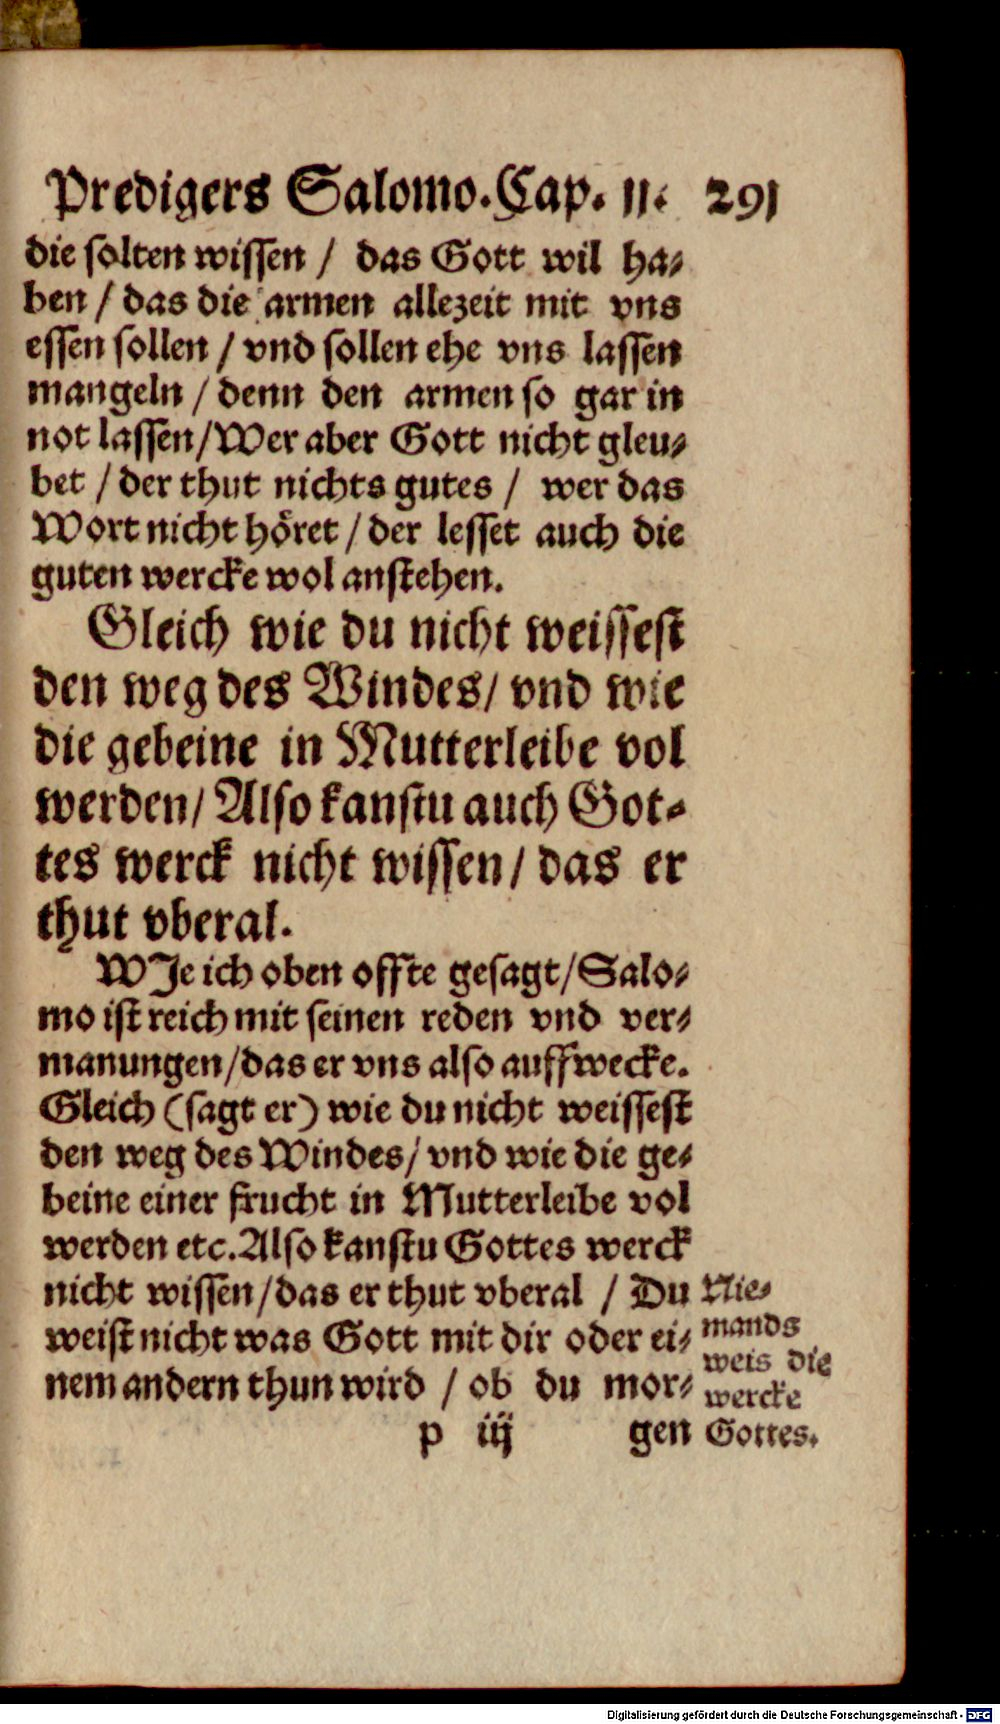 Predigers Salomo. Cap. 11. 291
die solten wissen / das Gott wil ha-
ben / das die armen allezeit mit vns
essen sollen / vnd sollen ehe vns lassen
mangeln / denn den armen so gar in
not lassen / Wer aber Gott nicht gleu-
bet / der thut nichts gutes / wer das
Wort nicht höret / der lesset auch die
guten wercke wol anstehen.
Gleich wie du nicht weissest
den weg des Windes / vnd wie
die gebeine in Mutterleibe vol
werden / Also kanstu auch Got-
tes werck nicht wissen / das er
thut vberal.
WJe ich oben offte gesagt / Salo-
mo ist reich mit seinen reden vnd ver-
manungen / das er vns also auffwecke.
Gleich (sagt er) wie du nicht weissest
den weg des Windes / vnd wie die ge-
beine einer frucht in Mutterleibe vol
werden etc. Also kanstu Gottes werck
nicht wissen / das er thut vberal / Du
weist nicht was Gott mit dir oder ei-
nem andern thun wird / ob du mor-
p iij gen
Nie-
mands
weis die
wercke
Gottes.
Digitalisierung gefördert durch die Deutsche Forschungsgemeinschaft - DFG